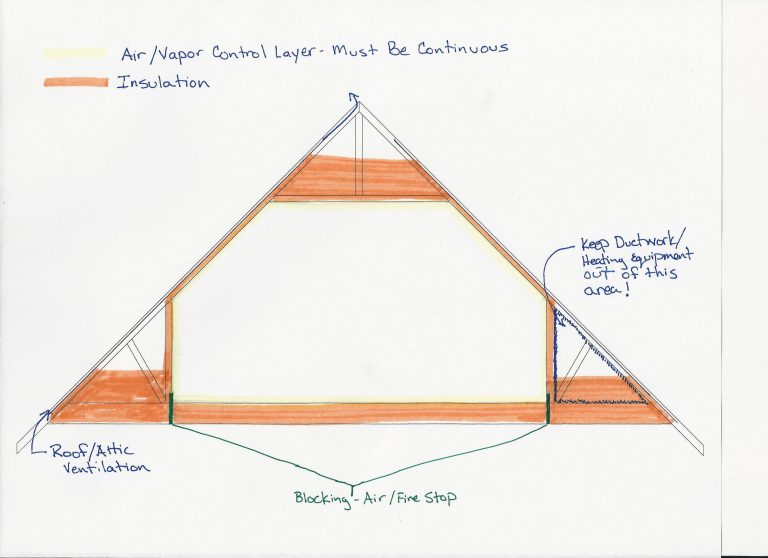 Air/Vapor Control Layer - Must Be Continuous
Insulation
Keep Ductwork/
Heating Equipment
out of this
area!
Roof/Attic
Ventilation
Blocking - Air/Fire Stop